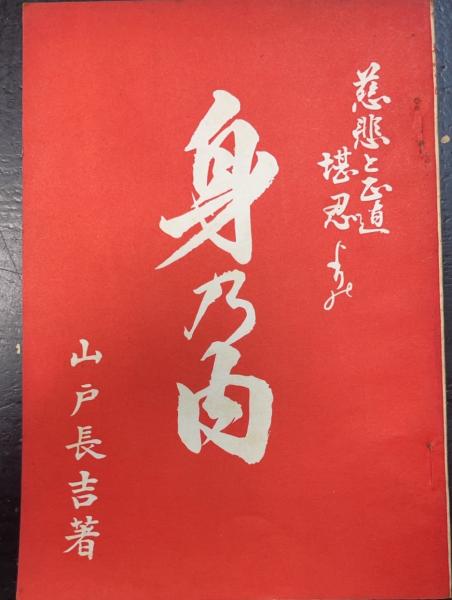 慈悲と正直
堪忍よりの
身乃内
山戸長吉著